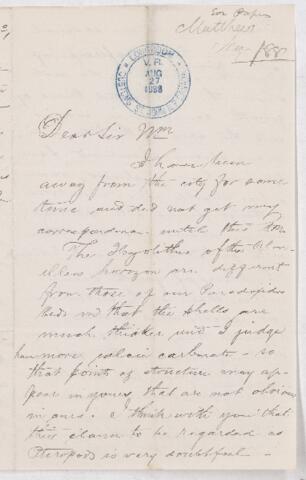 Matthew
188
V.R.
AUG
27
1888
Dear Sir Wm
I have been
away from the city for some
time and did not get my
correspondence until this
The Hyolithes of the Olen-
ellus horizon are different
from those of our Paradoxides
beds in that the shells are
much thicker and I judge
have more calcic carbonate - so
that points of structure may ap-
pear in yours, that are not obvious
in ours. I think with you that
their claim to be regarded as
Pteropods is very doubtful -